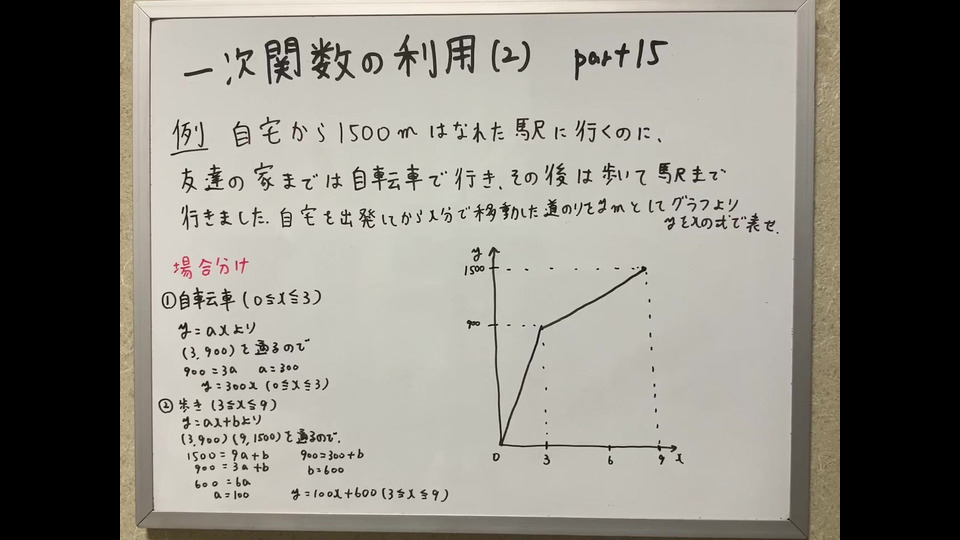 一次関数の利用(2) part15
例 自宅から1500mはなれた駅に行くのに、
友達の家までは自転車で行き、その後は歩いて駅まで
行きました。自宅を出発してからx分で移動した道のりをymとしてグラフより
yをxの式で表せ。
場合分け
①自転車(0≦x≦3)
y=axより
(3,900)を通るので
900=3a a=300
y=300x(0≦x≦3)
②歩き(3≦x≦9)
y=ax+bより
(3,900)(9,1500)を通るので.
1500=9a+b 900=300+b
900=3a+b b=600
600=6a
a=100 y=100x+600(3≦x≦9)
y
1500
900
0 3 6 9 x